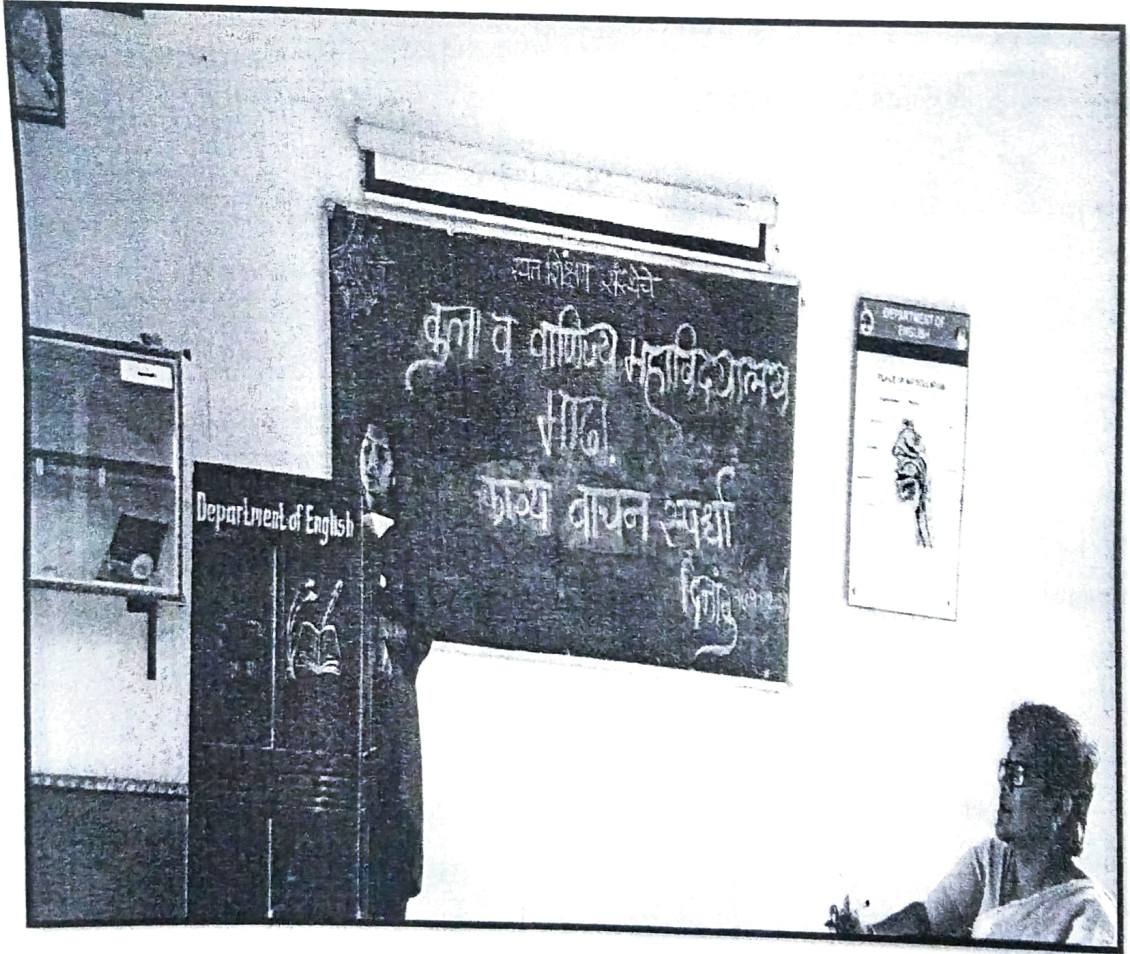 रयत शिक्षण संस्थेचे
कला व वाणिज्य महाविद्यालय
माढा.
काव्य वाचन स्पर्धा
Department of English
DEPARTMENT OF
ENGLISH